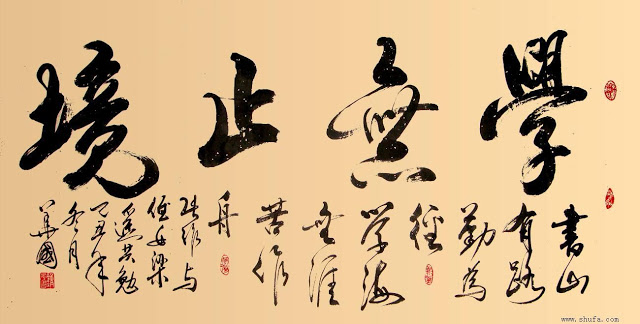 學無止境
書山
有路
勤為
徑
学海
無涯
苦作
舟
与
侄女梁
共勉
丑年
冬月
華國
www.shufa.com